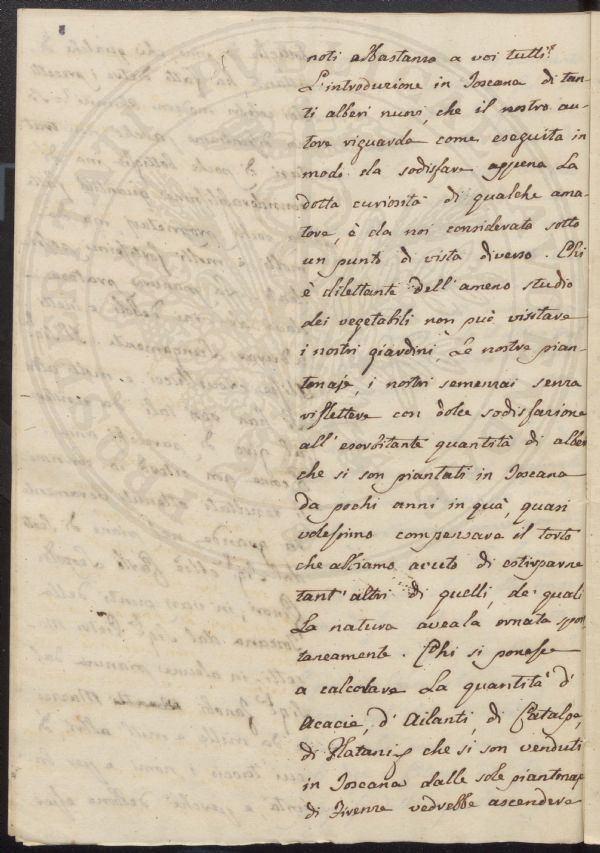 noti abbastanza a voi tutti.
L'introduzione in Toscana di tan-
ti alberi nuovi, che il nostro au-
tore riguarda come eseguita in
modo da sodisfare appena la
dotta curiosità di qualche ama-
tore, è da noi considerata sotto
un punto di vista diverso. Chi
è dilettante dell'ameno studio
dei vegetabili non può visitare
i nostri giardini, Le nostre pian-
tonaje, i nostri semenzai senza
riflettere con dolce sodisfazione
all'esorbitante quantità di alberi
che si son piantati in Toscana
da pochi anni in quà, quasi
volessimo compensare il torto
che abbiamo avuto di estirparne
tant'altri di quelli, de' quali
La natura aveala ornata spon
taneamente. Chi si ponesse
a calcolare La quantità d'
Acacie, d'Ailanti, di Catalpe,
di Platani che si son venduti
in Toscana dalle sole piantonaje
di Firenze vedrebbe ascendere